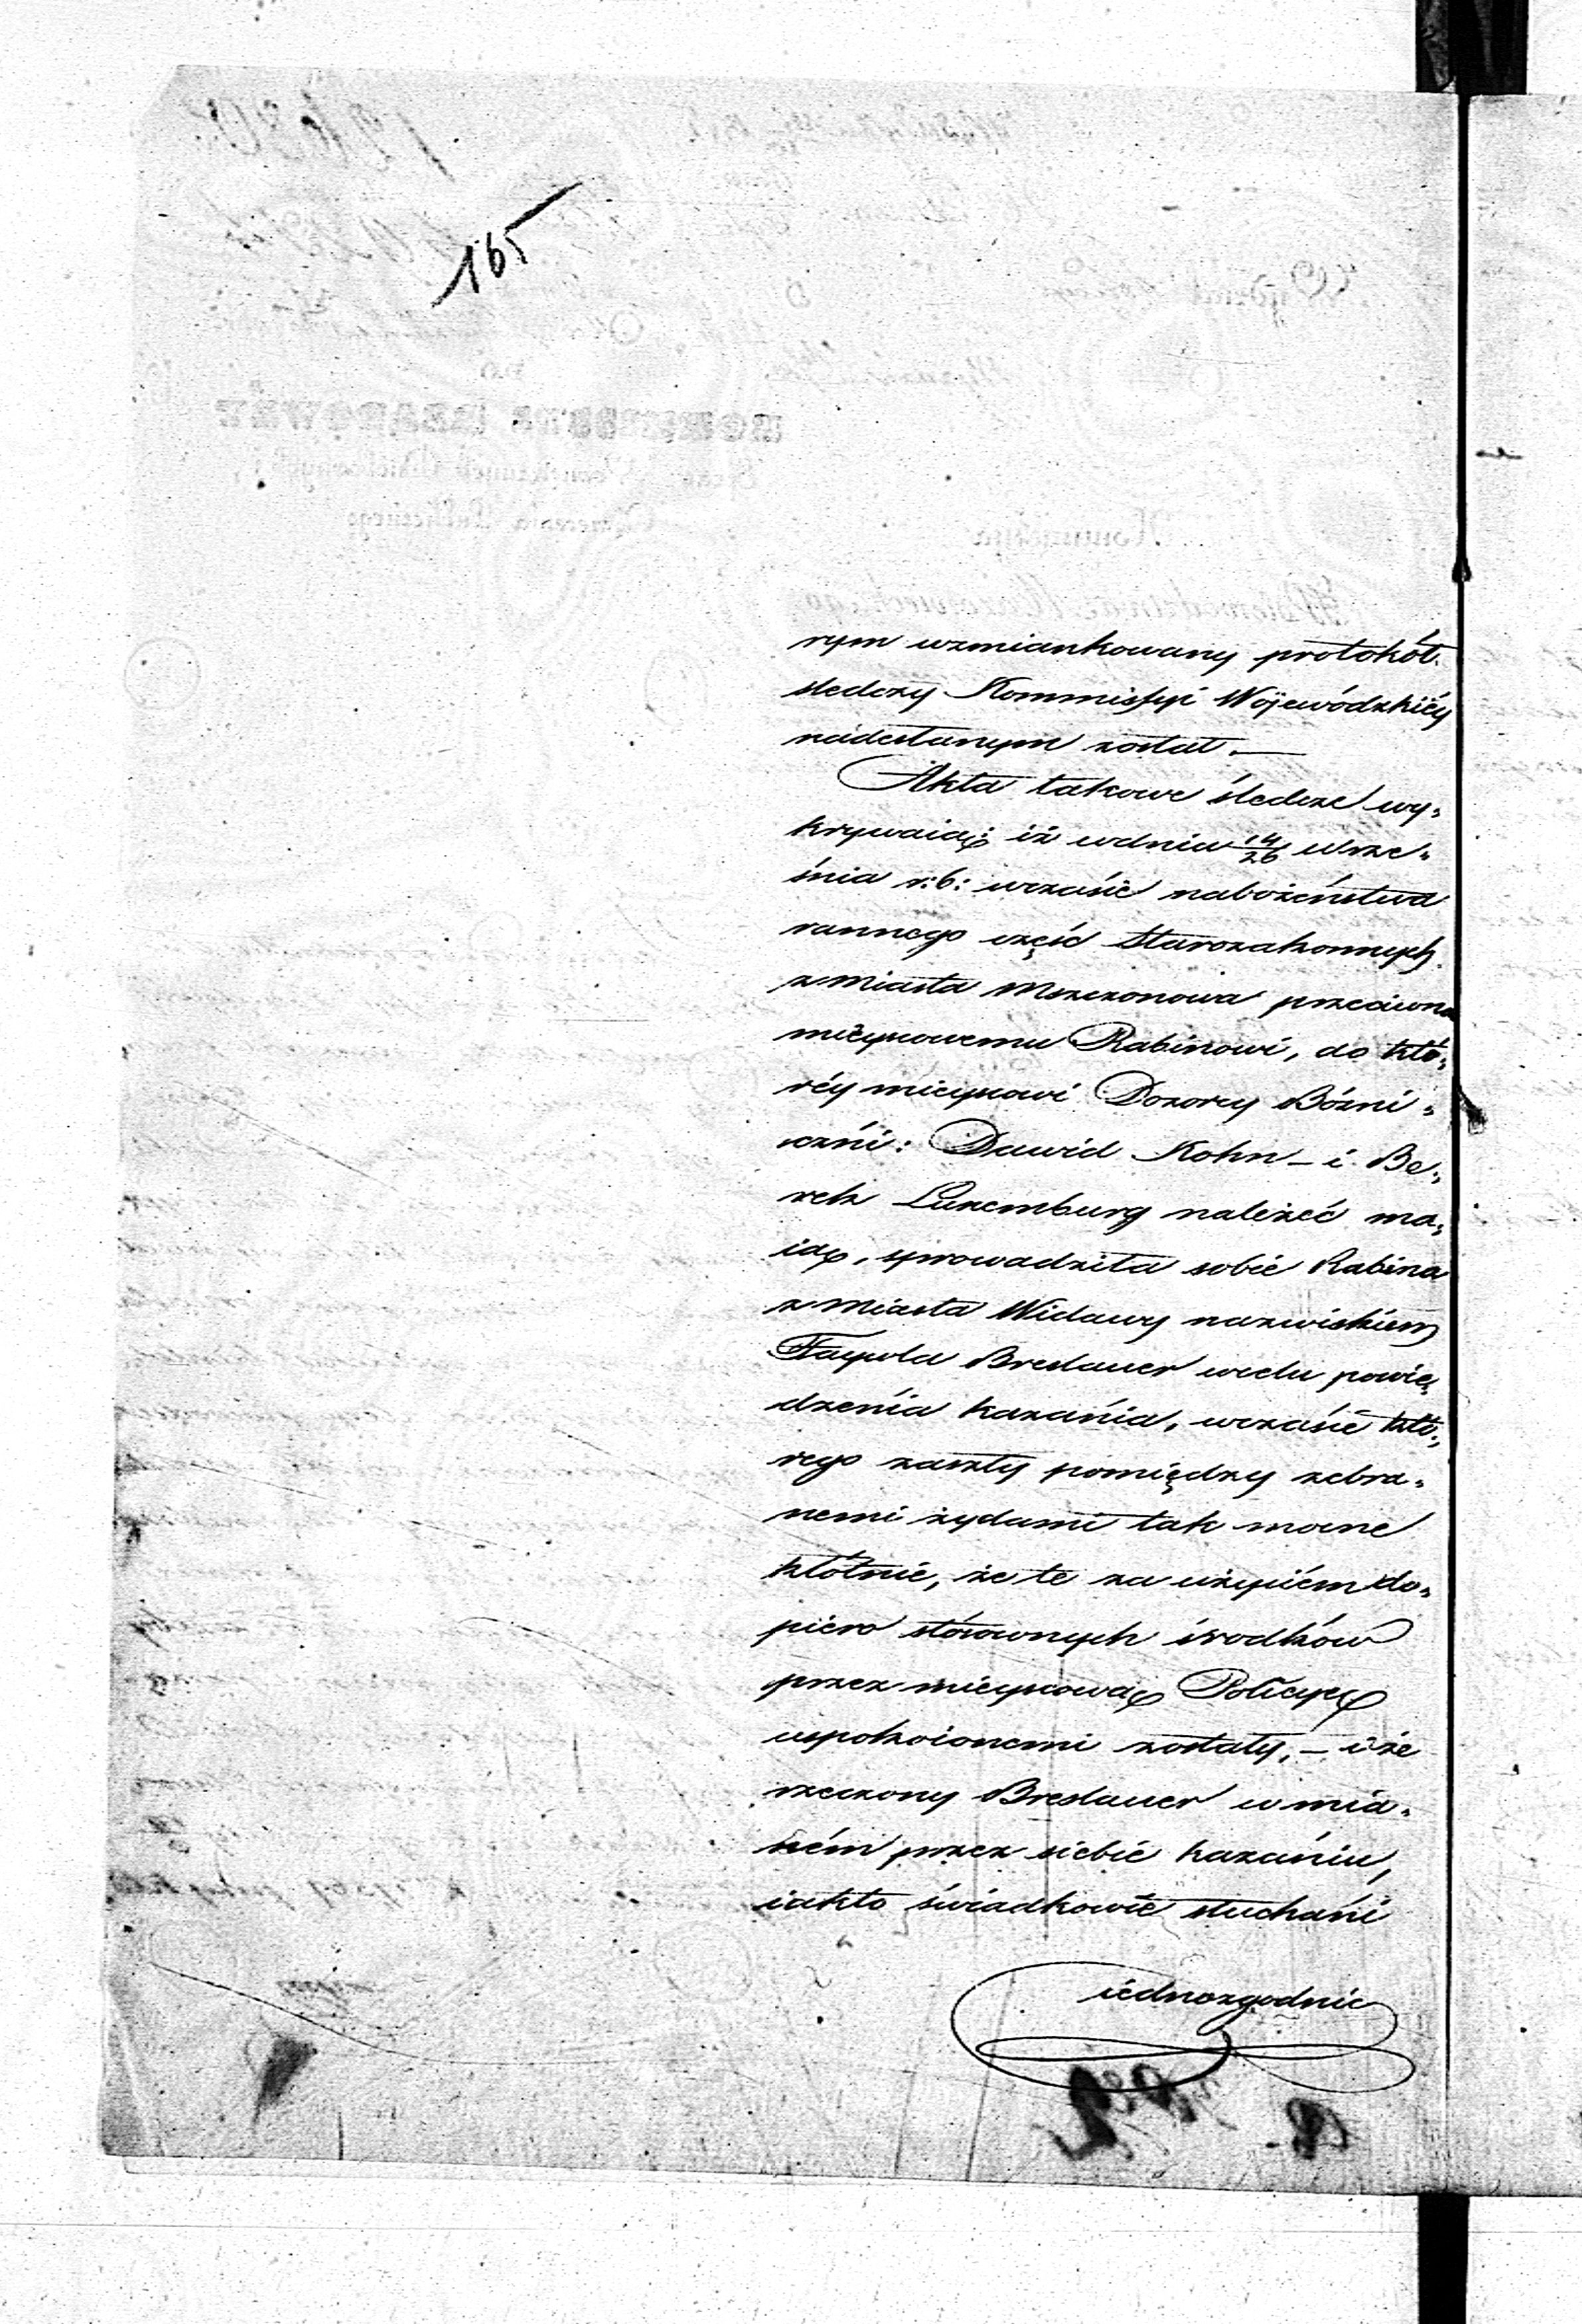 165
rym wzmiankowany protokół
śledczy Kommissyi Wojewódzkiéy
nadesłanym został. —
Akta takowe śledcze wy„
krywaią: iż wdniu 14/26 Wrze„
śnia r: b: wczasie nabożeństwa
rannego część Starozakonnych
z miasta Mszczonowa przeciwna
mieyscowemu Rabinowi, do któ„
réy mieyscowi Dozorcy Bóżni„
czni: Dawid Kohn – i Be„
rek Luxemburg należeć ma„
ią, sprowadziła sobie Rabina
z miasta Widawy nazwiskiem
Faywla Breslauer wcelu powie„
dzenia kazania, wczasie któ„
rego zaszły pomiędzy zebra„
nemi żydami tak mocne
kłótnie, że te za użyciem do„
piero stósownych środków
przez mieyscową Policyę
uspokoionemi zostały, – i że
rzeczony Breslauer w mia„
ném przez siebie kazaniu,
iakto świadkowie słuchani
iednozgodnie